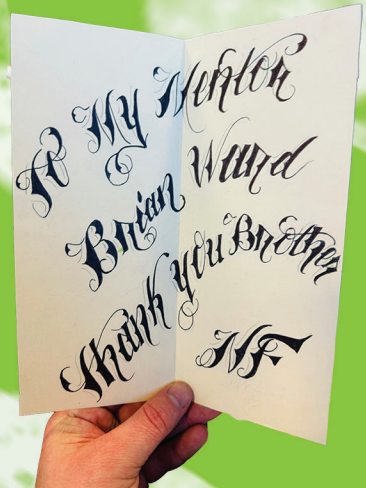 To My Mentor
Brian Ward
Thank you Brother
NF